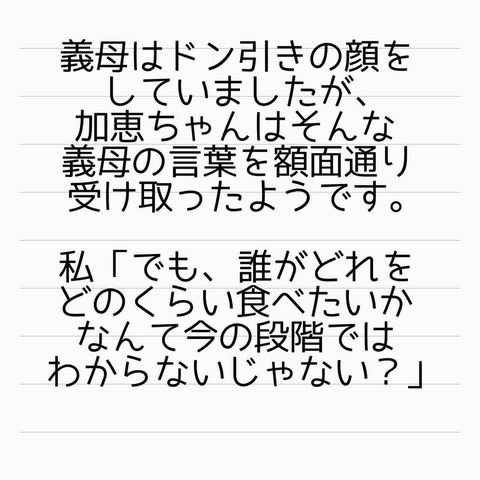 義母はドン引きの顔を
していましたが、
加恵ちゃんはそんな
義母の言葉を額面通り
受け取ったようです。
私「でも、誰がどれを
どのくらい食べたいか
なんて今の段階では
わからないじゃない？」